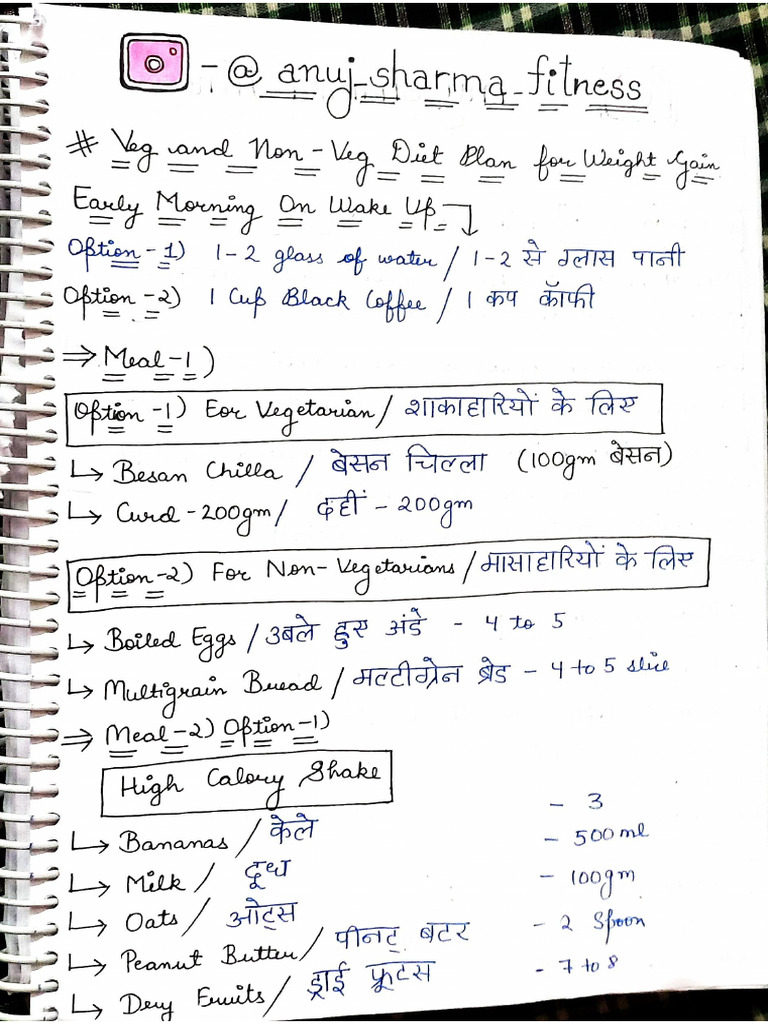 - @ anuj_sharma_fitness
# Veg and Non-Veg Diet Plan for Weight Gain
Early Morning On Wake Up
Option-1) 1-2 glass of water / 1-2 से ग्लास पानी
Option-2) 1 Cup Black Coffee / 1 कप कॉफी
⇒ Meal-1)
Option-1) For Vegetarian / शाकाहारियों के लिए
↳ Besan Chilla / बेसन चिल्ला (100gm बेसन)
↳ Curd-200gm / दहीं - 200gm
Option-2) For Non-Vegetarians / मासाहारियों के लिए
↳ Boiled Eggs / उबले हुए अंडे - 4 to 5
↳ Multigrain Bread / मल्टीग्रेन ब्रेड - 4 to 5 slice
⇒ Meal-2) Option-1)
High Calory Shake
↳ Bananas / केले - 3
↳ Milk / दूध - 500ml
↳ Oats / ओट्स - 100gm
↳ Peanut Butter / पीनट् बटर - 2 Spoon
↳ Dry Fruits / ड्राई फ्रूटस - 7 to 8